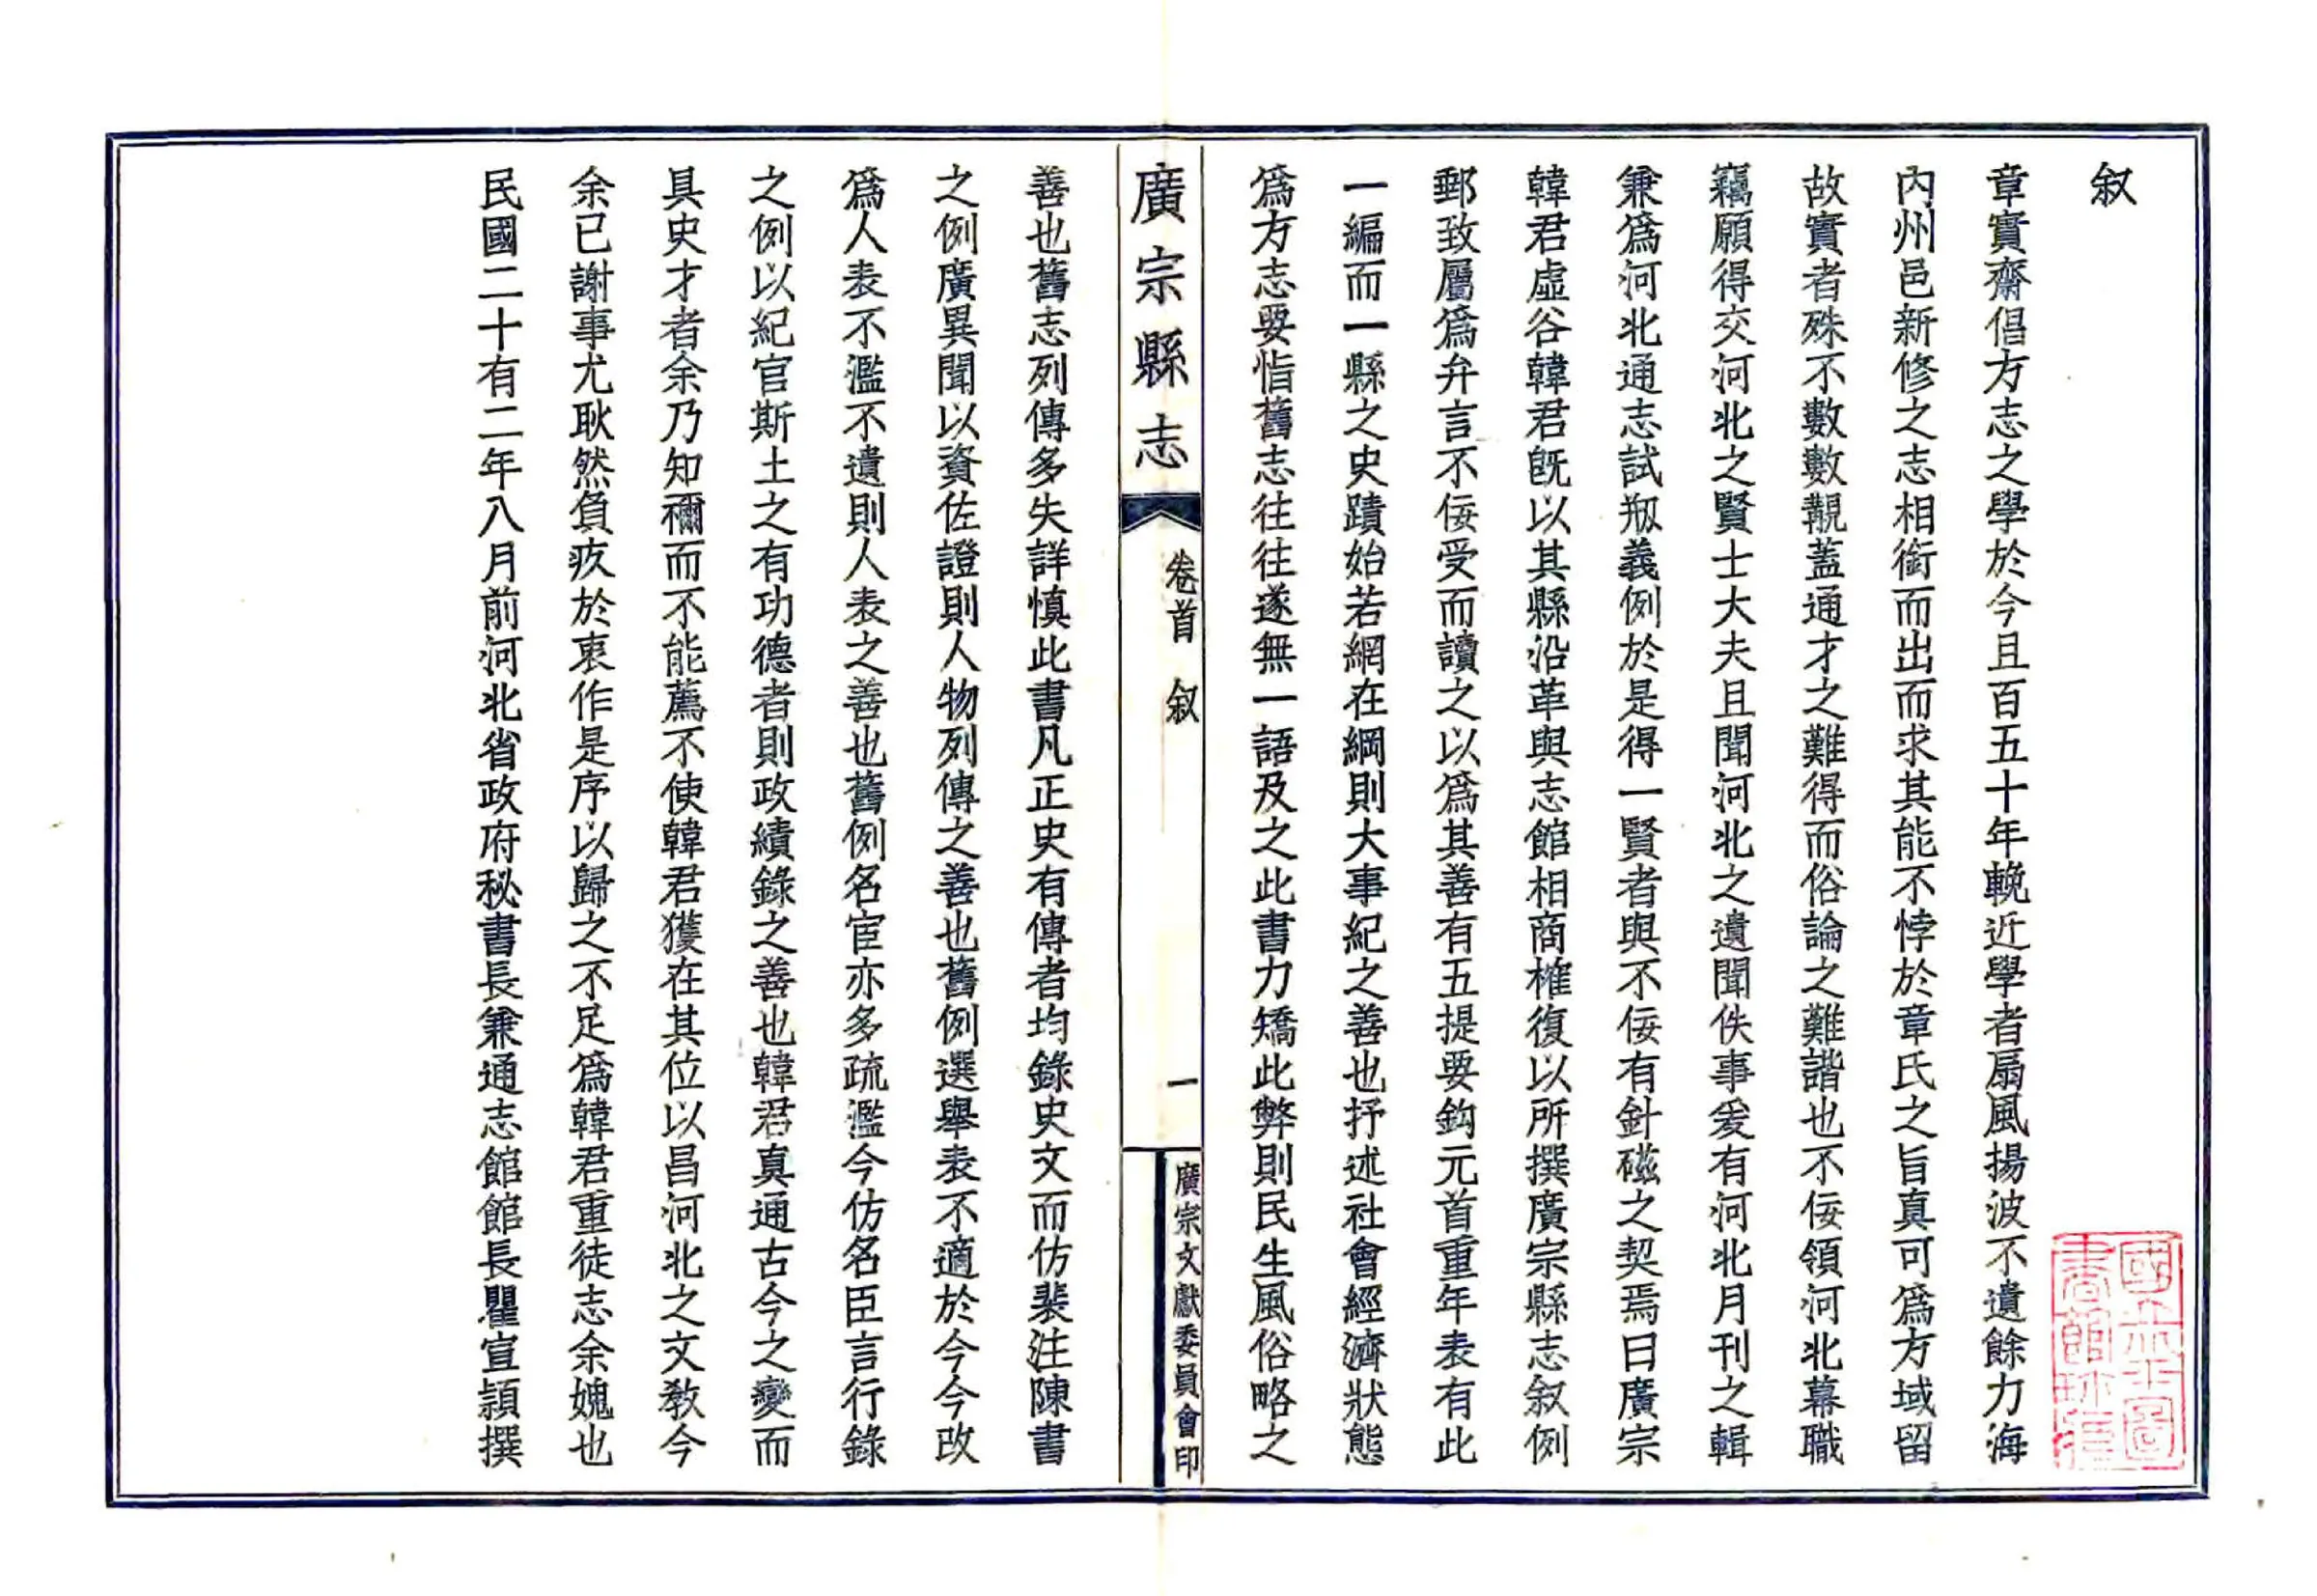 叙
章實齋倡方志之學於今且百五十年輓近學者扇風揚波不遺餘力海
內州邑新修之志相銜而出而求其能不悖於章氏之旨真可爲方域留
故實者殊不數數覯蓋通才之難得而俗論之難諧也不佞領河北幕職
竊願得交河北之賢士大夫且聞河北之遺聞佚事爰有河北月刊之輯
兼爲河北通志試剏義例於是得一賢者與不佞有針磁之契焉曰廣宗
韓君虛谷韓君旣以其縣沿革與志館相商榷復以所撰廣宗縣志叙例
郵致屬爲弁言不佞受而讀之以爲其善有五提要鈎元首重年表有此
一編而一縣之史蹟始若網在綱則大事紀之善也抒述社會經濟狀態
爲方志要恉舊志往往遂無一語及之此書力矯此弊則民生風俗略之
廣宗縣志
卷首 叙
一
廣宗文獻委員會印
善也舊志列傳多失詳慎此書凡正史有傳者均錄史文而仿裴注陳書
之例廣異聞以資佐證則人物列傳之善也舊例選舉表不適於今今改
爲人表不濫不遺則人表之善也舊例名宦亦多疏濫今仿名臣言行錄
之例以紀官斯土之有功德者則政績錄之善也韓君真通古今之變而
具史才者余乃知禰而不能薦不使韓君獲在其位以昌河北之文教今
余已謝事尤耿然負疚於衷作是序以歸之不足爲韓君重徒志余媿也
民國二十有二年八月前河北省政府秘書長兼通志館館長瞿宣穎撰